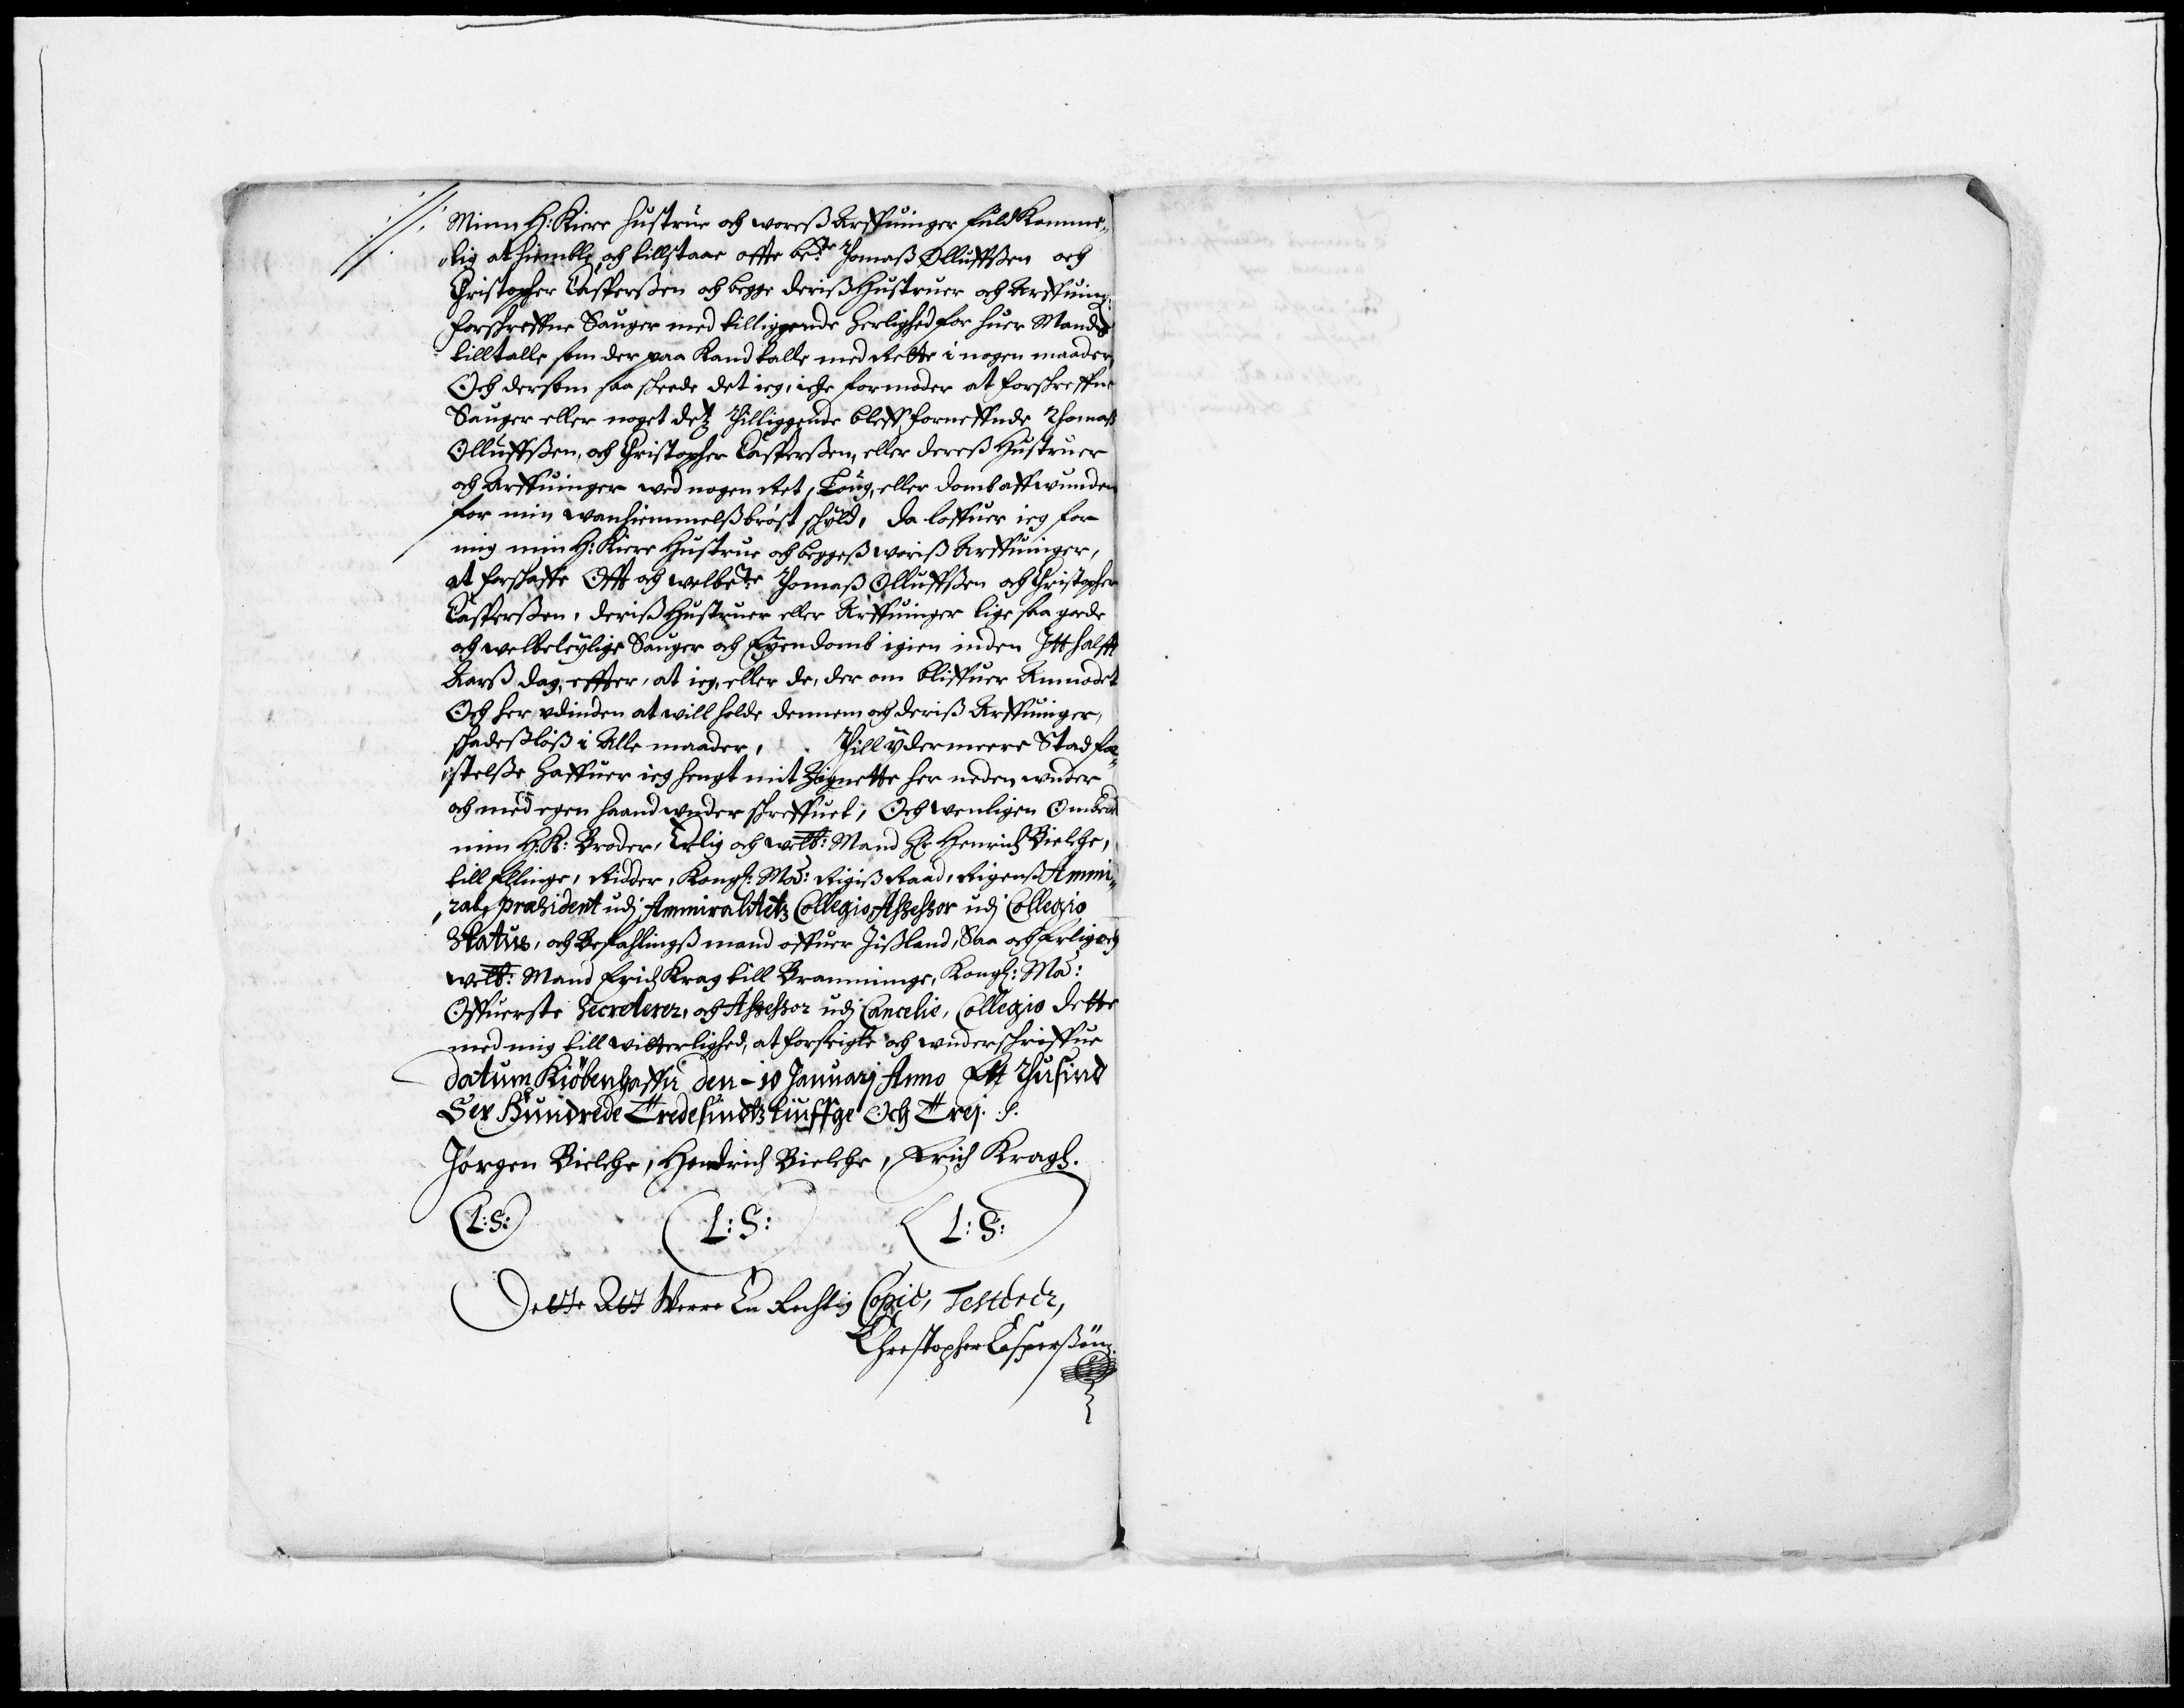 Minn H: Kiere hustrue och woreß Arffuinger fuld Komme„
„lig at hiemble, och tillstaae offte be:te Thomaß Olluffßen och
Christopher Casperßen och begge deriß Hustruer och Arffuing:
forschreffne Sauger med tilliggende herlighed for huer Mands
tilltalle som der paa Kand kalle med Rette i nogen maader,
Och dersom saa scheede det ieg, iche formoder at forschreffne
Sauger eller noget detz Thilliggende bleff forneffnde Thomaß
Olluffßen, och Christopher Casperßen, eller dereß Hustruer
och Arffuinger wed nogen Ret, Loug, eller domb affwunden
for min wanhiemmelß brøst schyld, da loffuer ieg for
mig min H: Kiere Hustrue och beggeß woriß Arffuinger,
at forschaffe Offt och welbe:te Thomaß Olluffßen och Christopher
Casperßen, deriß Hustruer eller Arffuinger lige saa goede
och welbeleylige Sauger och Eyendomb igien inden Itt halfft
Aarß dag, effter, at ieg, eller de, der om bliffuer Anmodet
Och her udinden at will holde dennem och deriß Arffuinger,
schadeßløß i Alle maader, Thill ydermeere Stadfæ„
„stelße haffuer ieg hengt mit Zignette her neden wnder
och med egen haand wnder schreffuet, Och wenligen Ombedt
min H: K: Broder, Erlig och welb: Mand Hr Henrich Bielche,
till Ellinge, Ridder, Kongl: Ma: Rigiß Raad, Rigenß Ammi„
„ral, Præsident udj Ammiralitetz Collegio, Assessor udj Collegio
Status, och Befahlingß mand offuer Jßland, Saa och Erlig och
welb: Mand Erich Krag till Bramminge, Kongl: Ma:
Offuerste Secreterer, och Assessor udj Cancelie, Collegio dette
med mig till witterlighed, at forseigle och wnderschriffue
datum Kiøbenhaffn den – 10 Januarj Anno Ett Thusind
Sex Hundrede Tredesindtz tiuffge Och Trej. :/:
Jørgen Bielche, Hendrich Bielche, Erich Kragh.
L: S: L: S: L: S:
Dette Att Werre En Rechtig Copie, Testerer,
Christopher Casperßøn